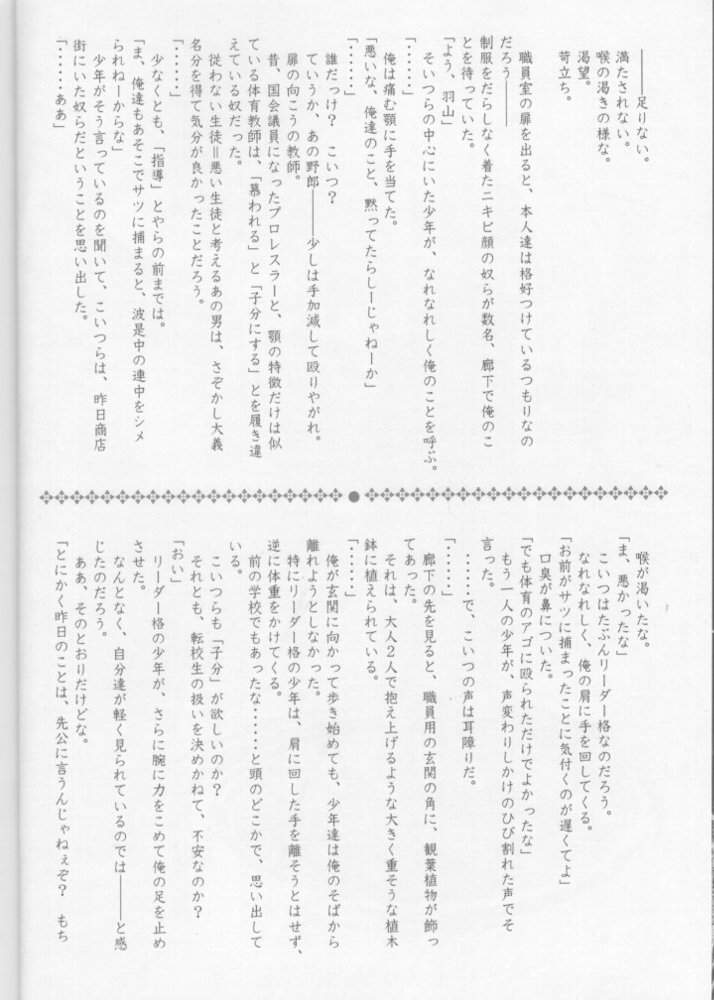 ――――足りない。
満たされない。
喉の渇きの様な。
渇望。
苛立ち。
職員室の扉を出ると、本人達は格好つけているつもりなの
だろう――――
制服をだらしなく着たニキビ顔の奴らが数名、廊下で俺のこ
とを待っていた。
「よう、羽山」
そいつらの中心にいた少年が、なれなれしく俺のことを呼ぶ。
「・・・・・」
俺は痛む顎に手を当てた。
「悪いな、俺達のこと、黙ってたらしーじゃねーか」
「・・・・・」
誰だっけ？　こいつ？
ていうか、あの野郎――――少しは手加減して殴りやがれ。
扉の向こうの教師。
昔、国会議員になったプロレスラーと、顎の特徴だけは似
ている体育教師は、「慕われる」と「子分にする」とを履き違
えている奴だった。
従わない生徒＝悪い生徒と考えるあの男は、さぞかし大義
名分を得て気分が良かったことだろう。
「・・・・・」
少なくとも、「指導」とやらの前までは。
「ま、俺達もあそこでサツに捕まると、波是中の連中をシメ
られねーからな」
少年がそう言っているのを聞いて、こいつらは、昨日商店
街にいた奴らだということを思い出した。
「・・・・・ああ」
喉が渇いたな。
「ま、悪かったな」
こいつはたぶんリーダー格なのだろう。
なれなれしく、俺の肩に手を回してくる。
「お前がサツに捕まったことに気付くのが遅くてよ」
口臭が鼻についた。
「でも体育のアゴに殴られただけでよかったな」
もう一人の少年が、声変わりしかけのひび割れた声でそ
言った。
・・・・・・で、こいつの声は耳障りだ。
「・・・・・・」
廊下の先を見ると、職員用の玄関の角に、観葉植物が飾っ
てあった。
それは、大人２人で抱え上げるような大きく重そうな植木
鉢に植えられている。
「・・・・・」
俺が玄関に向かって歩き始めても、少年達は俺のそばから
離れようとしなかった。
特にリーダー格の少年は、肩に回した手を離そうとはせず、
逆に体重をかけてくる。
前の学校でもあったな・・・・・と頭のどこかで、思い出して
いる。
こいつらも「子分」が欲しいのか？
それとも、転校生の扱いを決めかねて、不安なのか？
「おい」
リーダー格の少年が、さらに腕に力をこめて俺の足を止め
させた。
なんとなく、自分達が軽く見られているのでは――――と感
じたのだろう。
ああ、そのとおりだけどな。
「とにかく昨日のことは、先公に言うんじゃねぇぞ？　もち